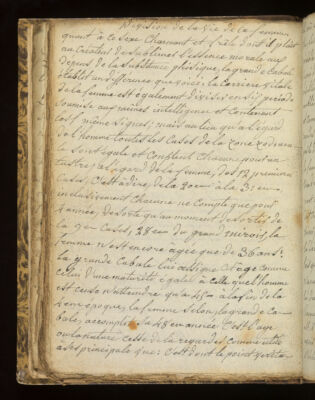 Division de la Vie de la femme
quant à ce sexe Charmant et frêle dont il plait
au Créateur de Sublimer l'essence morale aux
dépens de la Substance phisique, la grande Cabale
établit une différence que voici: la Carrière totale
de la femme est également divisée en Six periode
Soumise aux mêmes intelligence et Contenant
les même Signes; mais au lieu qu'à l'égard
de l'homme toutes les Cases de la zone zodiacale
Sont égale et Comptent Chacune pour un
lustre; à l'égard de la femme, des 12 premiere
Cases, C'est à dire, de la
inclusivement Chacune ne Compte que pour
années, de sorte qu'au moment de sortir de
la Case, 28em du grand miroir, la
femme n'est encore agée que de 36 ans.
la grande Cabale lui assigne Cet age comme
Celui d'une maturité égale à Celle que l'homme
est Censé n'atteindre qu'à 45 à la fin de la
époque; la femme Selon la grande Ca-
bale, accomplit Sa 48em année C'est l'age
ou la nature Cesse de la regarder Comme utile
à Ses principale vue: C'est dont le point